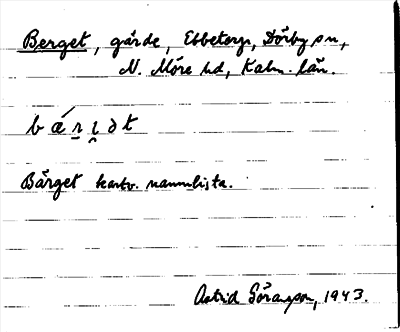 Berget, gärde, Ebbetorp, Dörby sn,
N. Möre hd, Kalm. län.
Bärget kartv. namnlista.
Astrid Göransson, 1943.